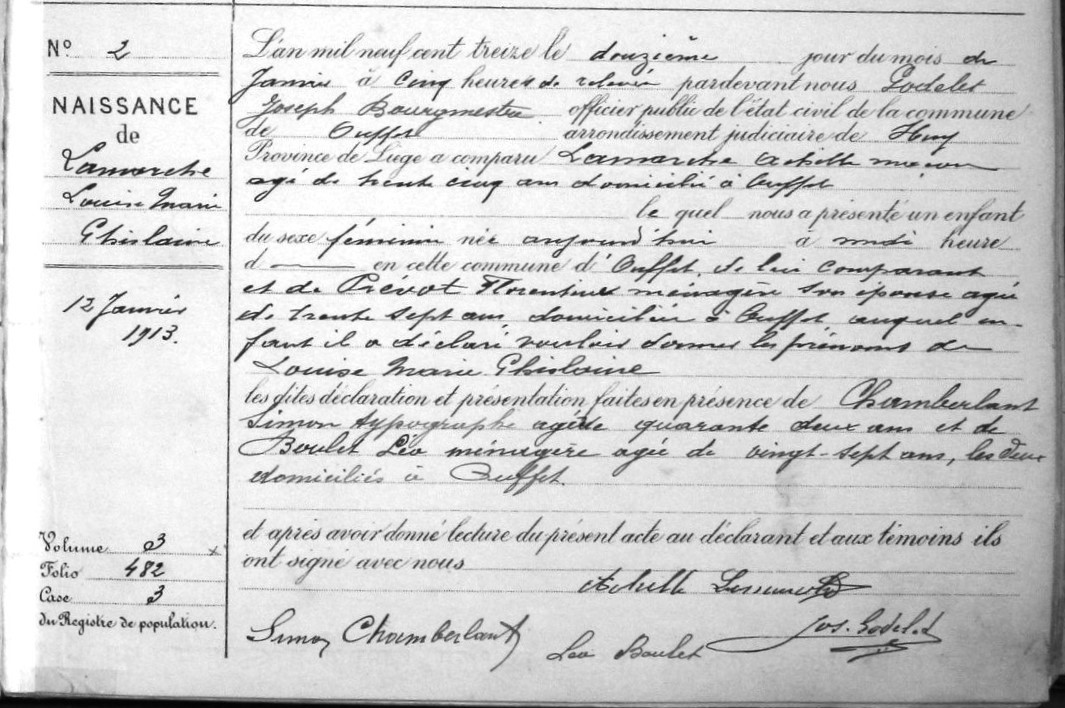 N° 2
NAISSANCE
de
Lamarche
Louise Marie
Ghislaine
12 Janvier
1913.
Volume 3 x
Folio 482
Case 3
du Registre de population.
L'an mil neuf cent treize le douzième jour du mois de
Janvier à Cinq heures de relevée pardevant nous Godelet
Joseph Bourgmestre officier public de l'état civil de la commune
de Ouffet arrondissement judiciaire de Huy
Province de Liège a comparu Lamarche Achille maçon
agé de trente cinq ans domicilié à Ouffet
le quel nous a présenté un enfant
du sexe féminin née aujourd'hui à midi heure
d en cette commune d'Ouffet, de lui comparant
et de Prevot Florentine ménagère son épouse agée
de trente sept ans domiciliée à Ouffet auquel en-
fant il a déclaré vouloir donner les prénoms de
Louise Marie Ghislaine
les dites déclaration et présentation faites en présence de Chamberlant
Simon typographe agé de quarante deux ans et de
Boulet Léa ménagère agée de vingt-sept ans, les deux
domiciliés à Ouffet.
et après avoir donné lecture du présent acte au déclarant et aux témoins ils
ont signé avec nous
Achille
Simon Chamberlant
Léa Boulet
Jos. Godelet